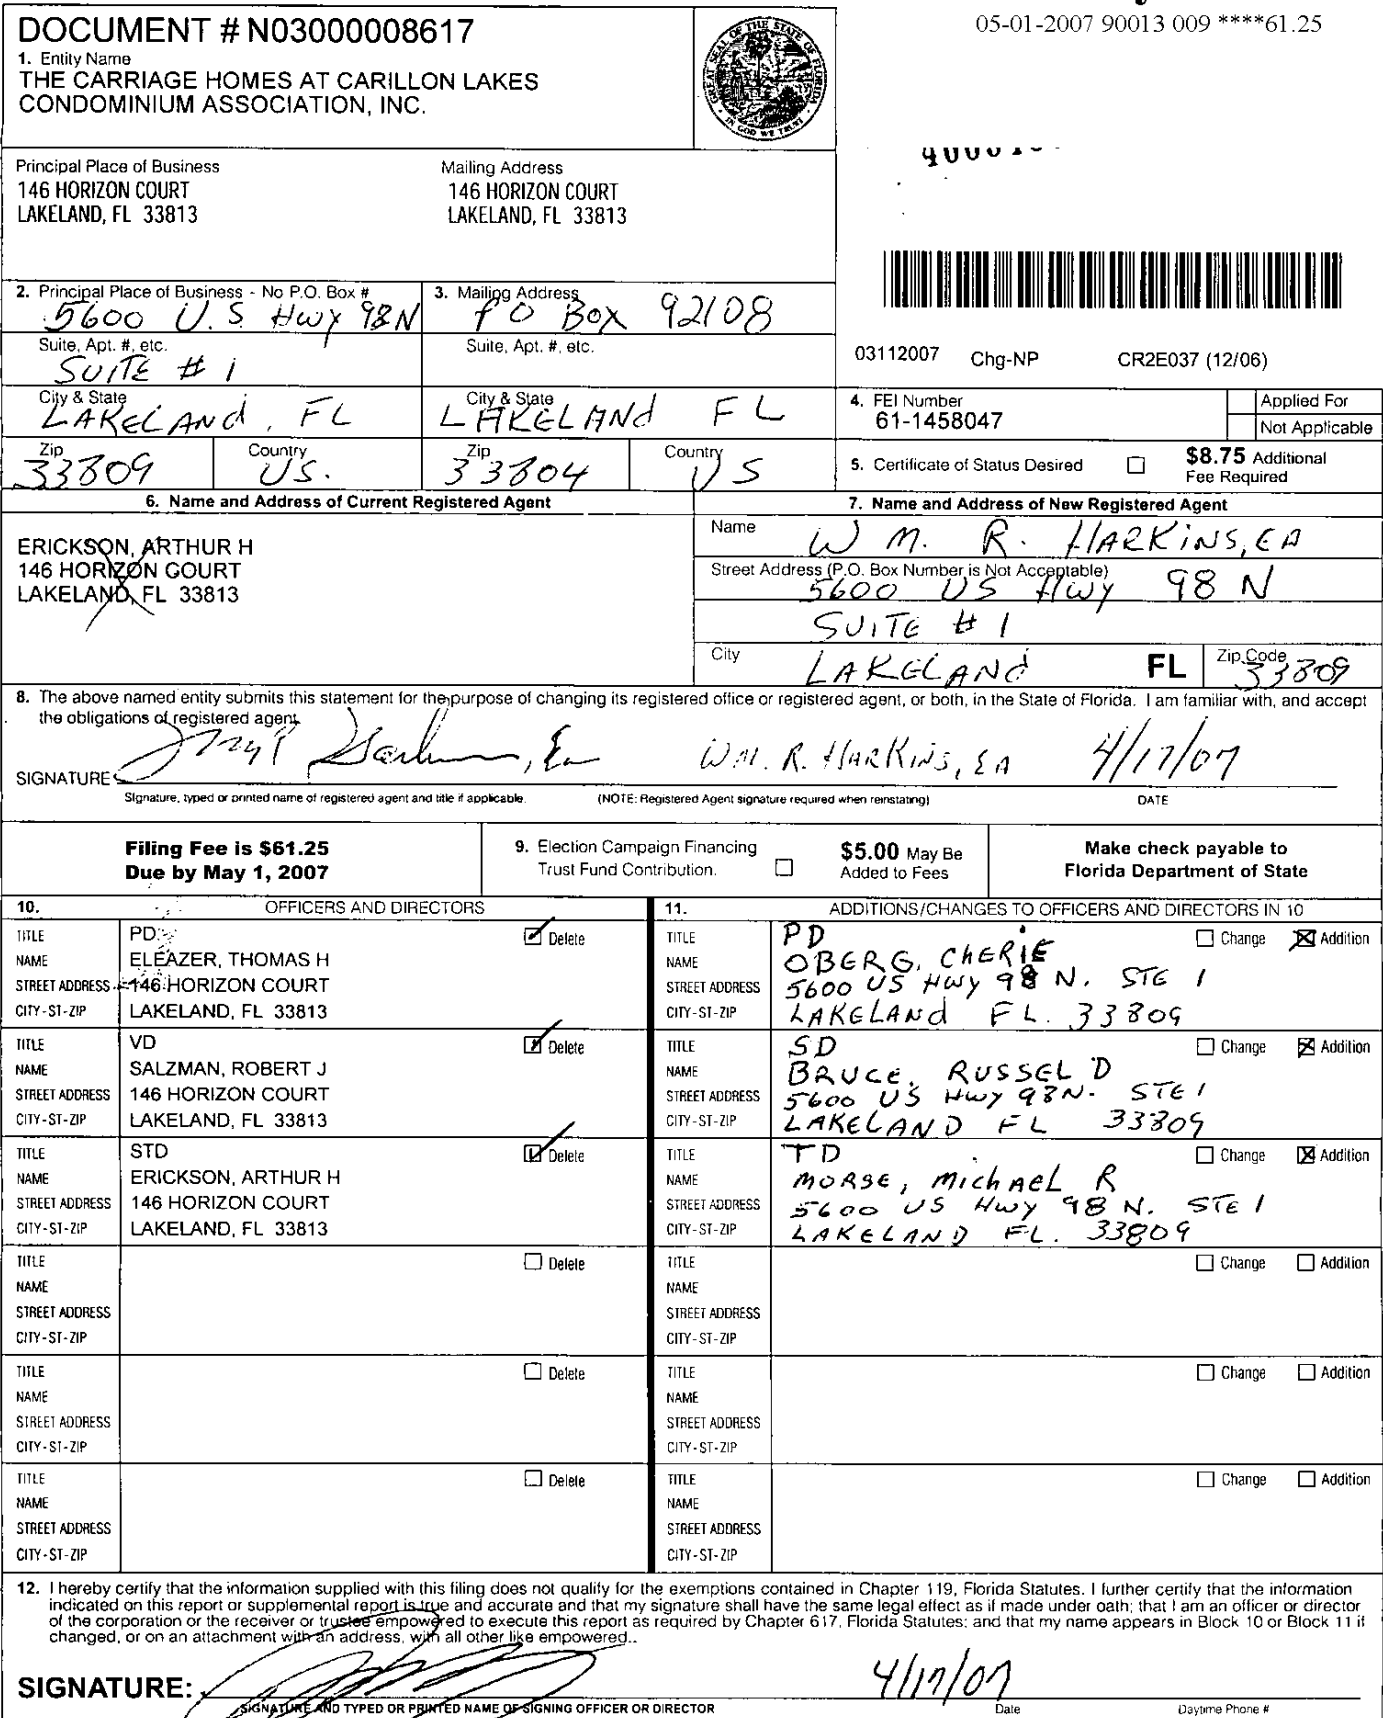 05-01-2007 90013 009 ****61.25
DOCUMENT # N03000008617
1. Entity Name
THE CARRIAGE HOMES AT CARILLON LAKES
CONDOMINIUM ASSOCIATION, INC.
GREAT SEAL OF THE STATE OF FLORIDA
IN GOD WE TRUST
Principal Place of Business
146 HORIZON COURT
LAKELAND, FL 33813
Mailing Address
146 HORIZON COURT
LAKELAND, FL 33813
2. Principal Place of Business - No P.O. Box #
5600 U.S. Hwy 98N
Suite, Apt. #, etc.
SUITE # 1
City & State
LAKELAND, FL
Zip
33809
Country
US.
3. Mailing Address
PO Box 92108
Suite, Apt. #, etc.
City & State
LAKELAND FL
Zip
33804
Country
US
03112007 Chg-NP CR2E037 (12/06)
4. FEI Number
61-1458047
Applied For
Not Applicable
5. Certificate of Status Desired
$8.75 Additional
Fee Required
6. Name and Address of Current Registered Agent
ERICKSON, ARTHUR H
146 HORIZON COURT
LAKELAND, FL 33813
7. Name and Address of New Registered Agent
Name
WM. R. HARKINS, EA
Street Address (P.O. Box Number is Not Acceptable)
5600 US Hwy 98 N
SUITE # 1
City
LAKELAND
FL
Zip Code
33809
8. The above named entity submits this statement for the purpose of changing its registered office or registered agent, or both, in the State of Florida. I am familiar with, and accept
the obligations of registered agent.
SIGNATURE
WM. R. HARKINS, EA 4/17/07
Signature, typed or printed name of registered agent and title if applicable. (NOTE: Registered Agent signature required when reinstating) DATE
Filing Fee is $61.25
Due by May 1, 2007
9. Election Campaign Financing
Trust Fund Contribution.
$5.00 May Be
Added to Fees
Make check payable to
Florida Department of State
10. OFFICERS AND DIRECTORS
TITLE PD Delete
NAME ELEAZER, THOMAS H
STREET ADDRESS 146 HORIZON COURT
CITY-ST-ZIP LAKELAND, FL 33813
TITLE VD Delete
NAME SALZMAN, ROBERT J
STREET ADDRESS 146 HORIZON COURT
CITY-ST-ZIP LAKELAND, FL 33813
TITLE STD Delete
NAME ERICKSON, ARTHUR H
STREET ADDRESS 146 HORIZON COURT
CITY-ST-ZIP LAKELAND, FL 33813
TITLE Delete
NAME
STREET ADDRESS
CITY-ST-ZIP
TITLE Delete
NAME
STREET ADDRESS
CITY-ST-ZIP
TITLE Delete
NAME
STREET ADDRESS
CITY-ST-ZIP
11. ADDITIONS/CHANGES TO OFFICERS AND DIRECTORS IN 10
TITLE PD Change Addition
NAME OBERG, CHERIE
STREET ADDRESS 5600 US Hwy 98 N. STE 1
CITY-ST-ZIP LAKELAND FL. 33809
TITLE SD Change Addition
NAME BRUCE, RUSSEL D
STREET ADDRESS 5600 US Hwy 98N. STE 1
CITY-ST-ZIP LAKELAND FL 33809
TITLE TD Change Addition
NAME MORSE, MICHAEL R
STREET ADDRESS 5600 US Hwy 98 N. STE 1
CITY-ST-ZIP LAKELAND FL. 33809
TITLE Change Addition
NAME
STREET ADDRESS
CITY-ST-ZIP
TITLE Change Addition
NAME
STREET ADDRESS
CITY-ST-ZIP
TITLE Change Addition
NAME
STREET ADDRESS
CITY-ST-ZIP
12. I hereby certify that the information supplied with this filing does not qualify for the exemptions contained in Chapter 119, Florida Statutes. I further certify that the information
indicated on this report or supplemental report is true and accurate and that my signature shall have the same legal effect as if made under oath; that I am an officer or director
of the corporation or the receiver or trustee empowered to execute this report as required by Chapter 617, Florida Statutes; and that my name appears in Block 10 or Block 11 if
changed, or on an attachment with an address, with all other like empowered..
SIGNATURE: 4/17/07
SIGNATURE AND TYPED OR PRINTED NAME OF SIGNING OFFICER OR DIRECTOR Date Daytime Phone #